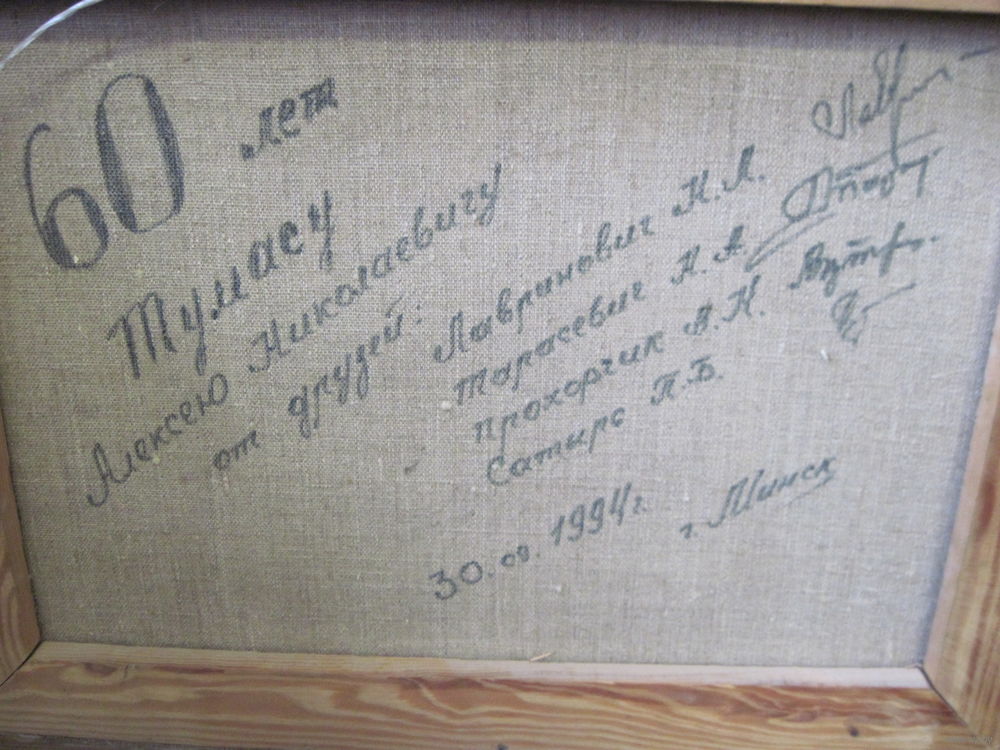 60 лет
Тумаеу
Алексею Николаевичу
от друзей: Лавринович Н.Л.
Тарасевич Н.А.
прохорчик А.Н.
Сатиро П.Б.
30. 09. 1994 г.
г. Минск